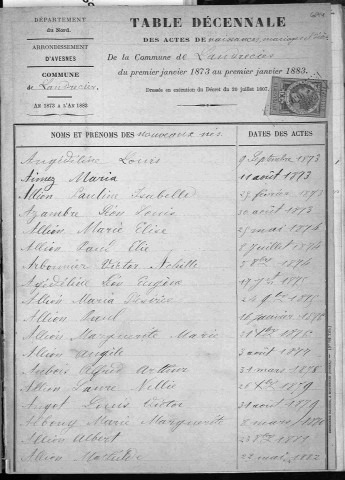 DÉPARTEMENT
du Nord.
ARRONDISSEMENT
D'AVESNES
COMMUNE
de Landrecies
AN 1873 A L'AN 1883
TABLE DÉCENNALE
DES ACTES DE naissances, mariages et décès
De la Commune de Landrecies
du premier janvier 1873 au premier janvier 1883.
Dressée en exécution du Décret du 20 juillet 1807.
NOMS ET PRÉNOMS DES nouveaux nés DATES DES ACTES
Louis 9 Septembre 1873
Aimez Maria 11 août 1873
Allion Pauline Isabelle février 1873
Azambre Léon Louis 30 août 1873
Allion Marie Elise mai 1874
Allion Paul Elie 8 juillet 1874
Arbonnier Victor Achille 1874
Léon Eugène 17 1875
Allion Maria Désirée 1875
Allion Paul 16 janvier 1876
Allion Marguerite Marie 1876
Allion Angèle 3 août 1877
Aubois Alfred Arthur 31 mars 1878
Allion Laure Nellie 1879
Louis Victor 31 août 1879
Marie Marguerite 8 mars 1880
Allion Albert 1881
Allion Mathilde 22 mai 1882